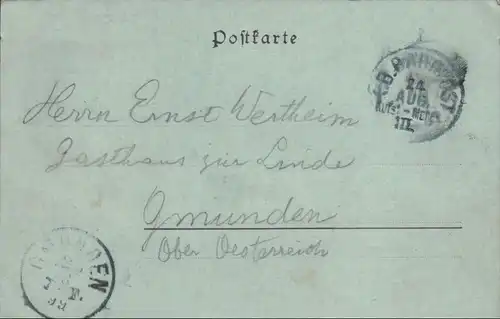 Postkarte
K.B. BAHNPOST
24
AUG.
III.
Herrn Ernst Wertheim
Gasthaus zur Linde
Gmunden
Ober Oesterreich
GMUNDEN